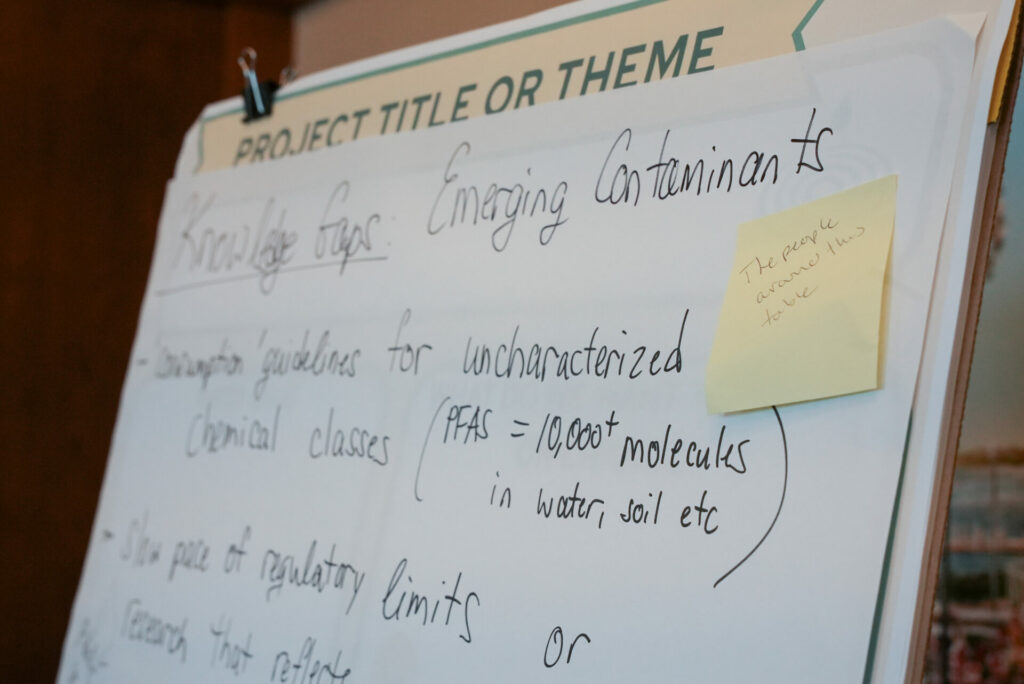 PROJECT TITLE OR THEME
Knowledge Gaps: Emerging Contaminants
The people
around this
table
- 'consumption' guidelines for uncharacterized
chemical classes (PFAS = 10,000+ molecules
in water, soil etc)
- Slow pace of regulatory limits or
research that reflects